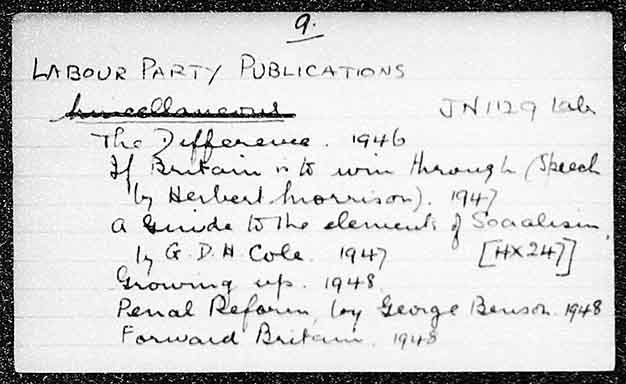 9.
LABOUR PARTY PUBLICATIONS
Miscellaneous JN1129 Lab
The Difference. 1946
If Britain is to win through (Speech
by Herbert Morrison). 1947
A Guide to the elements of Socialism,
by G.D.H. Cole. 1947 [HX247]
Growing up. 1948
Penal Reform, by George Benson. 1948
Forward Britain. 1948